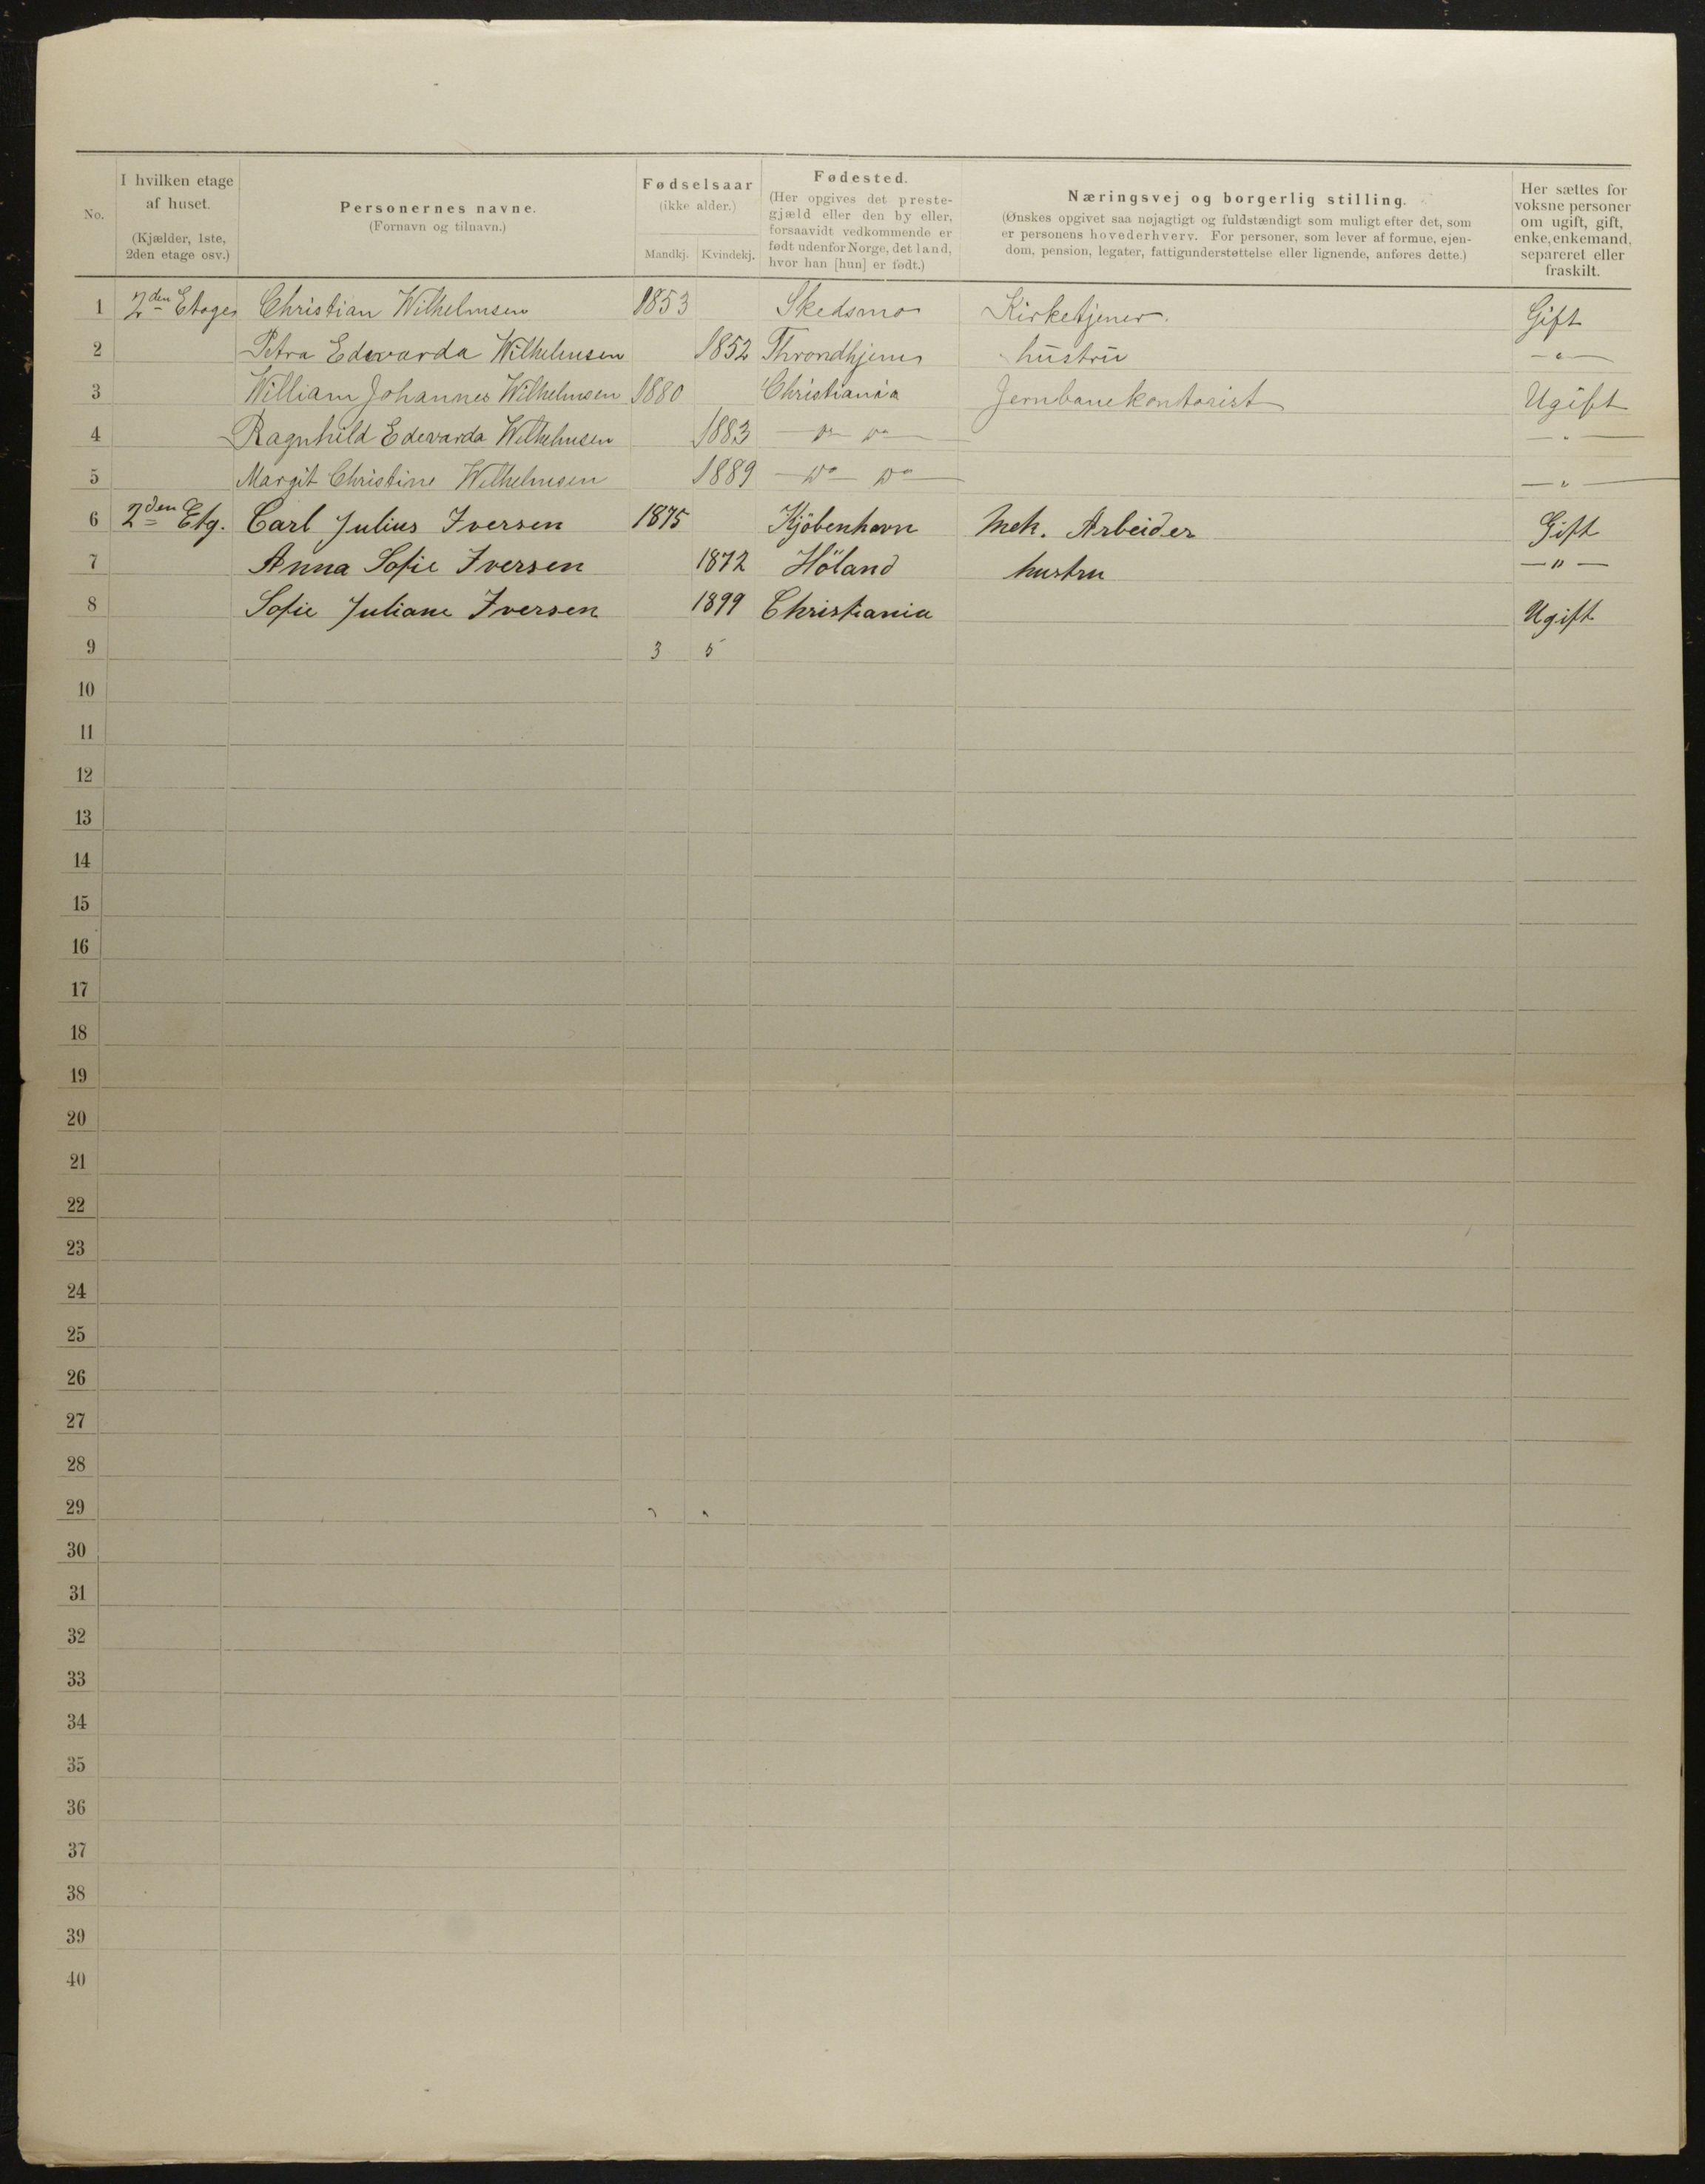 No.
I hvilken etage af huset.
(Kjælder, 1ste, 2den etage osv.)
Personernes navne.
(Fornavn og tilnavn.)
Fødselsaar
(ikke alder.)
Mandkj. Kvindekj.
Fødested.
(Her opgives det preste-
gjæld eller den by eller,
forsaavidt vedkommende er
født udenfor Norge, det land,
hvor han [hun] er født.)
Næringsvej og borgerlig stilling.
(Ønskes opgivet saa nøjagtigt og fuldstændigt som muligt efter det, som
er personens hovederhverv. For personer, som lever af formue, ejen-
dom, pension, legater, fattigunderstøttelse eller lignende, anføres dette.)
Her sættes for
voksne personer
om ugift, gift,
enke, enkemand,
separeret eller
fraskilt.
1 2den Etages Christian Wilhelmsen 1853 Skedsmo Kirketjener. Gift
2 Petra Edevarda Wilhelmsen 1852 Throndhjem hustru — " —
3 William Johannes Wilhelmsen 1880 Christiania Jernbanekontorist Ugift
4 Ragnhild Edevarda Wilhelmsen 1883 — Do Do — — " —
5 Margit Christine Wilhelmsen 1889 — Do Do — — " —
6 2den Etg. Carl Julius Iversen 1875 Kjöbenhavn Mek. Arbeider Gift
7 Anna Sofie Iversen 1872 Höland hustru — " —
8 Sofie Juliane Iversen 1899 Christiania Ugift
9 3 5
10
11
12
13
14
15
16
17
18
19
20
21
22
23
24
25
26
27
28
29
30
31
32
33
34
35
36
37
38
39
40